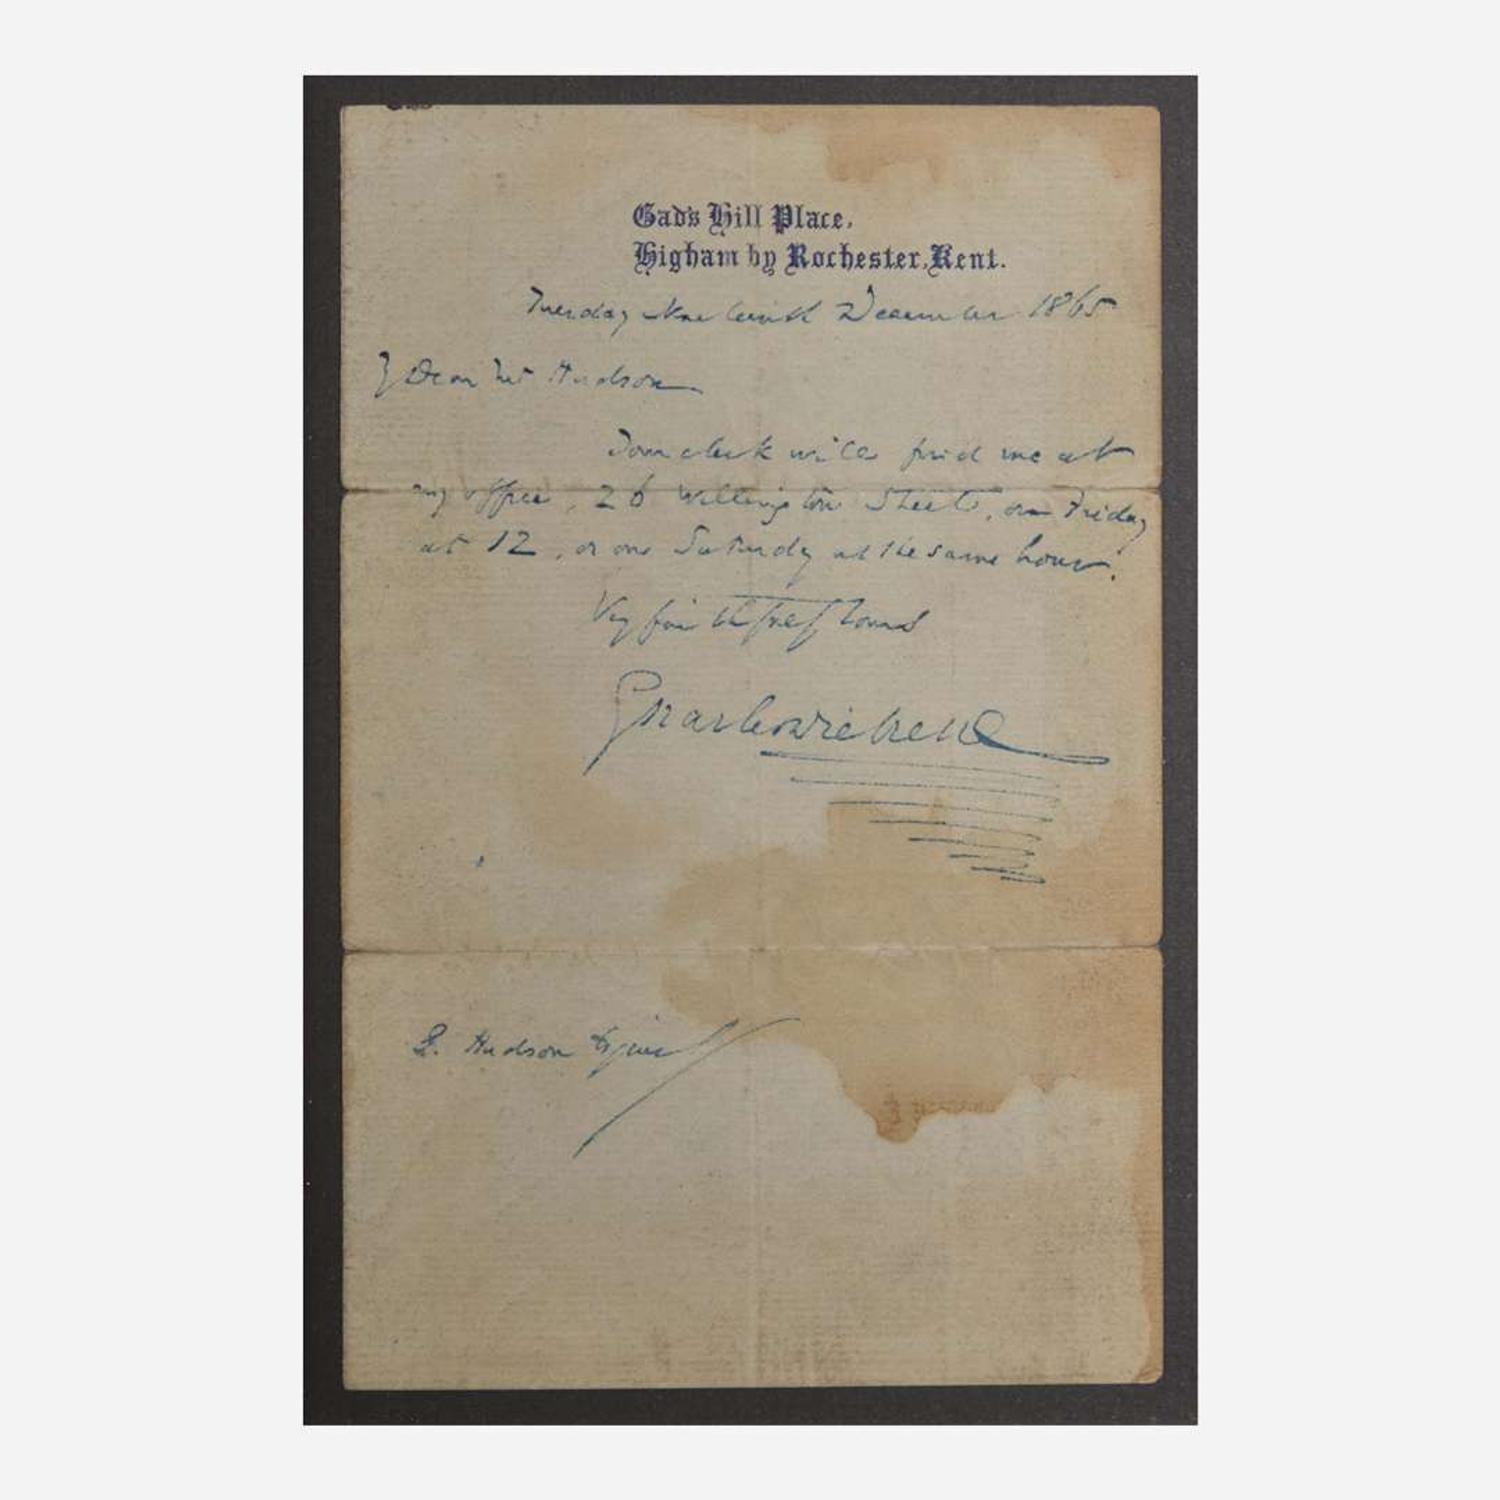 Gad's Hill Place,
Higham by Rochester, Kent.
Tuesday Nineteenth December 1865
My Dear Mr Hudson
Your clerk will find me at
my office, 26 Wellington Street, on Friday
at 12, or on Saturday at the same hour.
Very faithfully Yours
Charles Dickens
Hudson Esquire